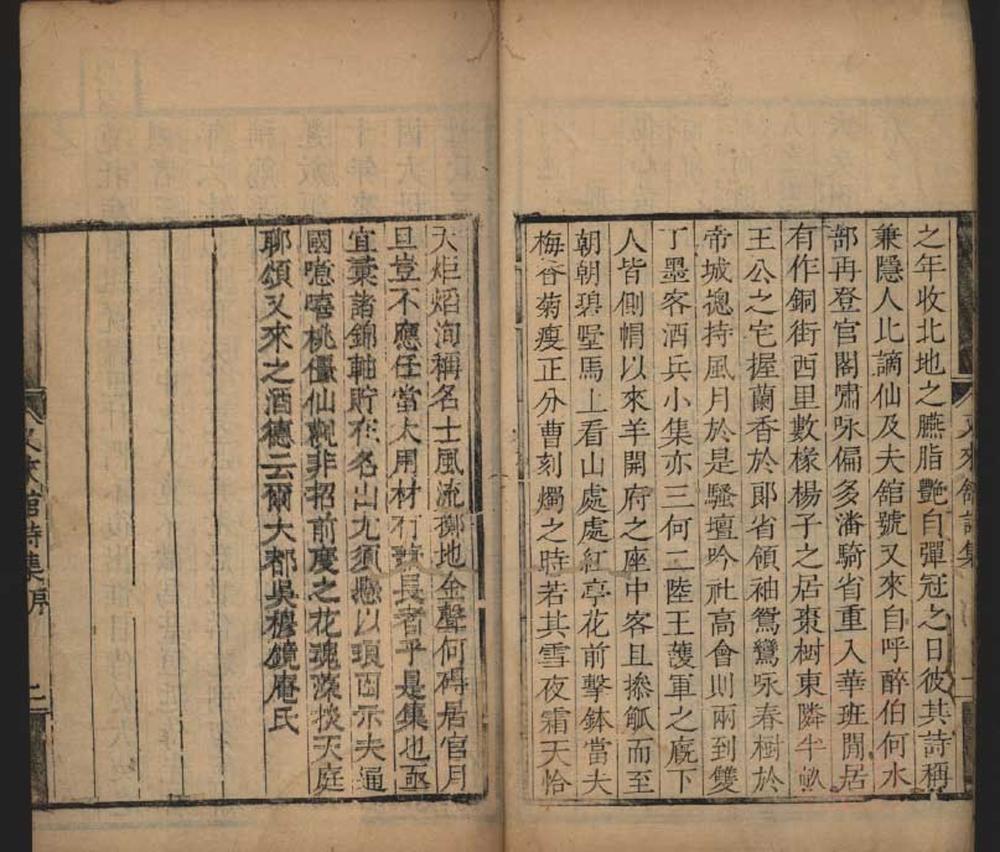 之年收北地之臙脂艷自彈冠之日彼其詩稱
兼隱人比謫仙及夫舘號又來自呼醉伯何水
部再登官閣嘯咏偏多潘騎省重入華班閒居
有作銅街西里數椽楊子之居棗樹東隣半畝
王公之宅握蘭香於郎省領袖鴛鸞咏春樹於
帝城摠持風月於是騷壇吟社高會則兩到雙
丁墨客酒兵小集亦三何二陸王護軍之廐下
人皆側帽以來羊開府之座中客且摻觚而至
朝朝碧墅馬上看山處處紅亭花前擊鉢當夫
梅香菊瘦正分曹刻燭之時若其雪夜霜天恰
又來舘詩集
大炬熖洵稱名士風流擲地金聲何碍居官月
旦豈不應任當大用材有兼長者乎是集也亟
宜藁諸錦軸貯在名山尤須懸以頭圖示夫通
國噫嘻桃僵仙觀非招前度之花魂藻掞天庭
聊頌又來之酒德云爾大都吳穆鏡庵氏
又來舘詩集序
二